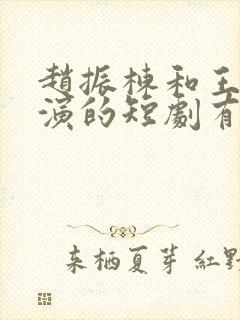 趙振棟和王
演的短劇有
来栖夏芽 紅野